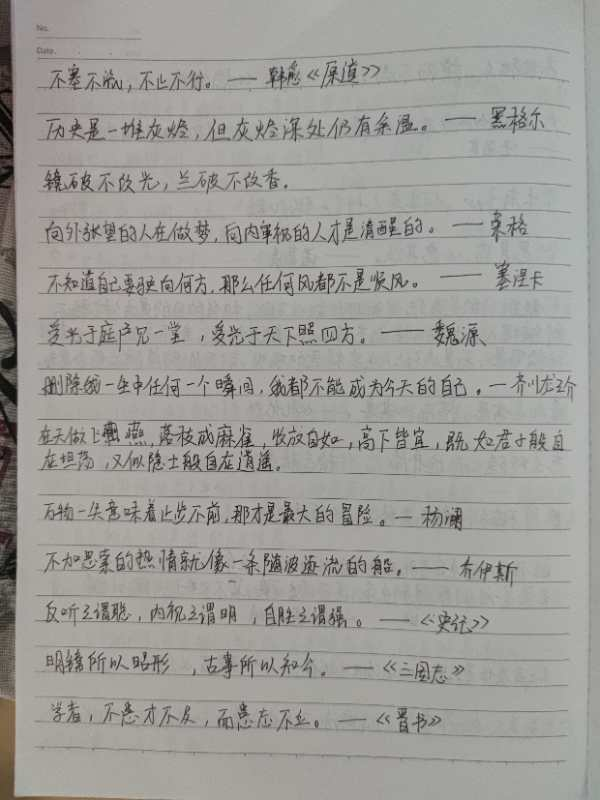 No.
Date.
不塞不流，不止不行。——韩愈《原道》
历史是一堆灰烬，但灰烬深处仍有余温。——黑格尔
镜破不改光，兰破不改香。
向外张望的人在做梦，向内审视的人才是清醒的。——荣格
不知道自己要驶向何方，那么任何风都不是顺风。——塞涅卡
受光于庭户见一堂，受光于天下照四方。——魏源
删除我一生中任何一个瞬间，我都不能成为今天的自己。—芥川龙之介
在天做上燕，落枝成麻雀，收放自如，高下皆宜，既如君子般自
在坦荡，又似隐士般自在逍遥。
万物一失意味着止步不前，那才是最大的冒险。—杨澜
不加思索的热情就像一条随波逐流的船。——乔伊斯
反听之谓聪，内视之谓明，自胜之谓强。——《史记》
明镜所以昭形，古事所以知今。——《三国志》
学者，不患才不及，而患志不立。——《晋书》